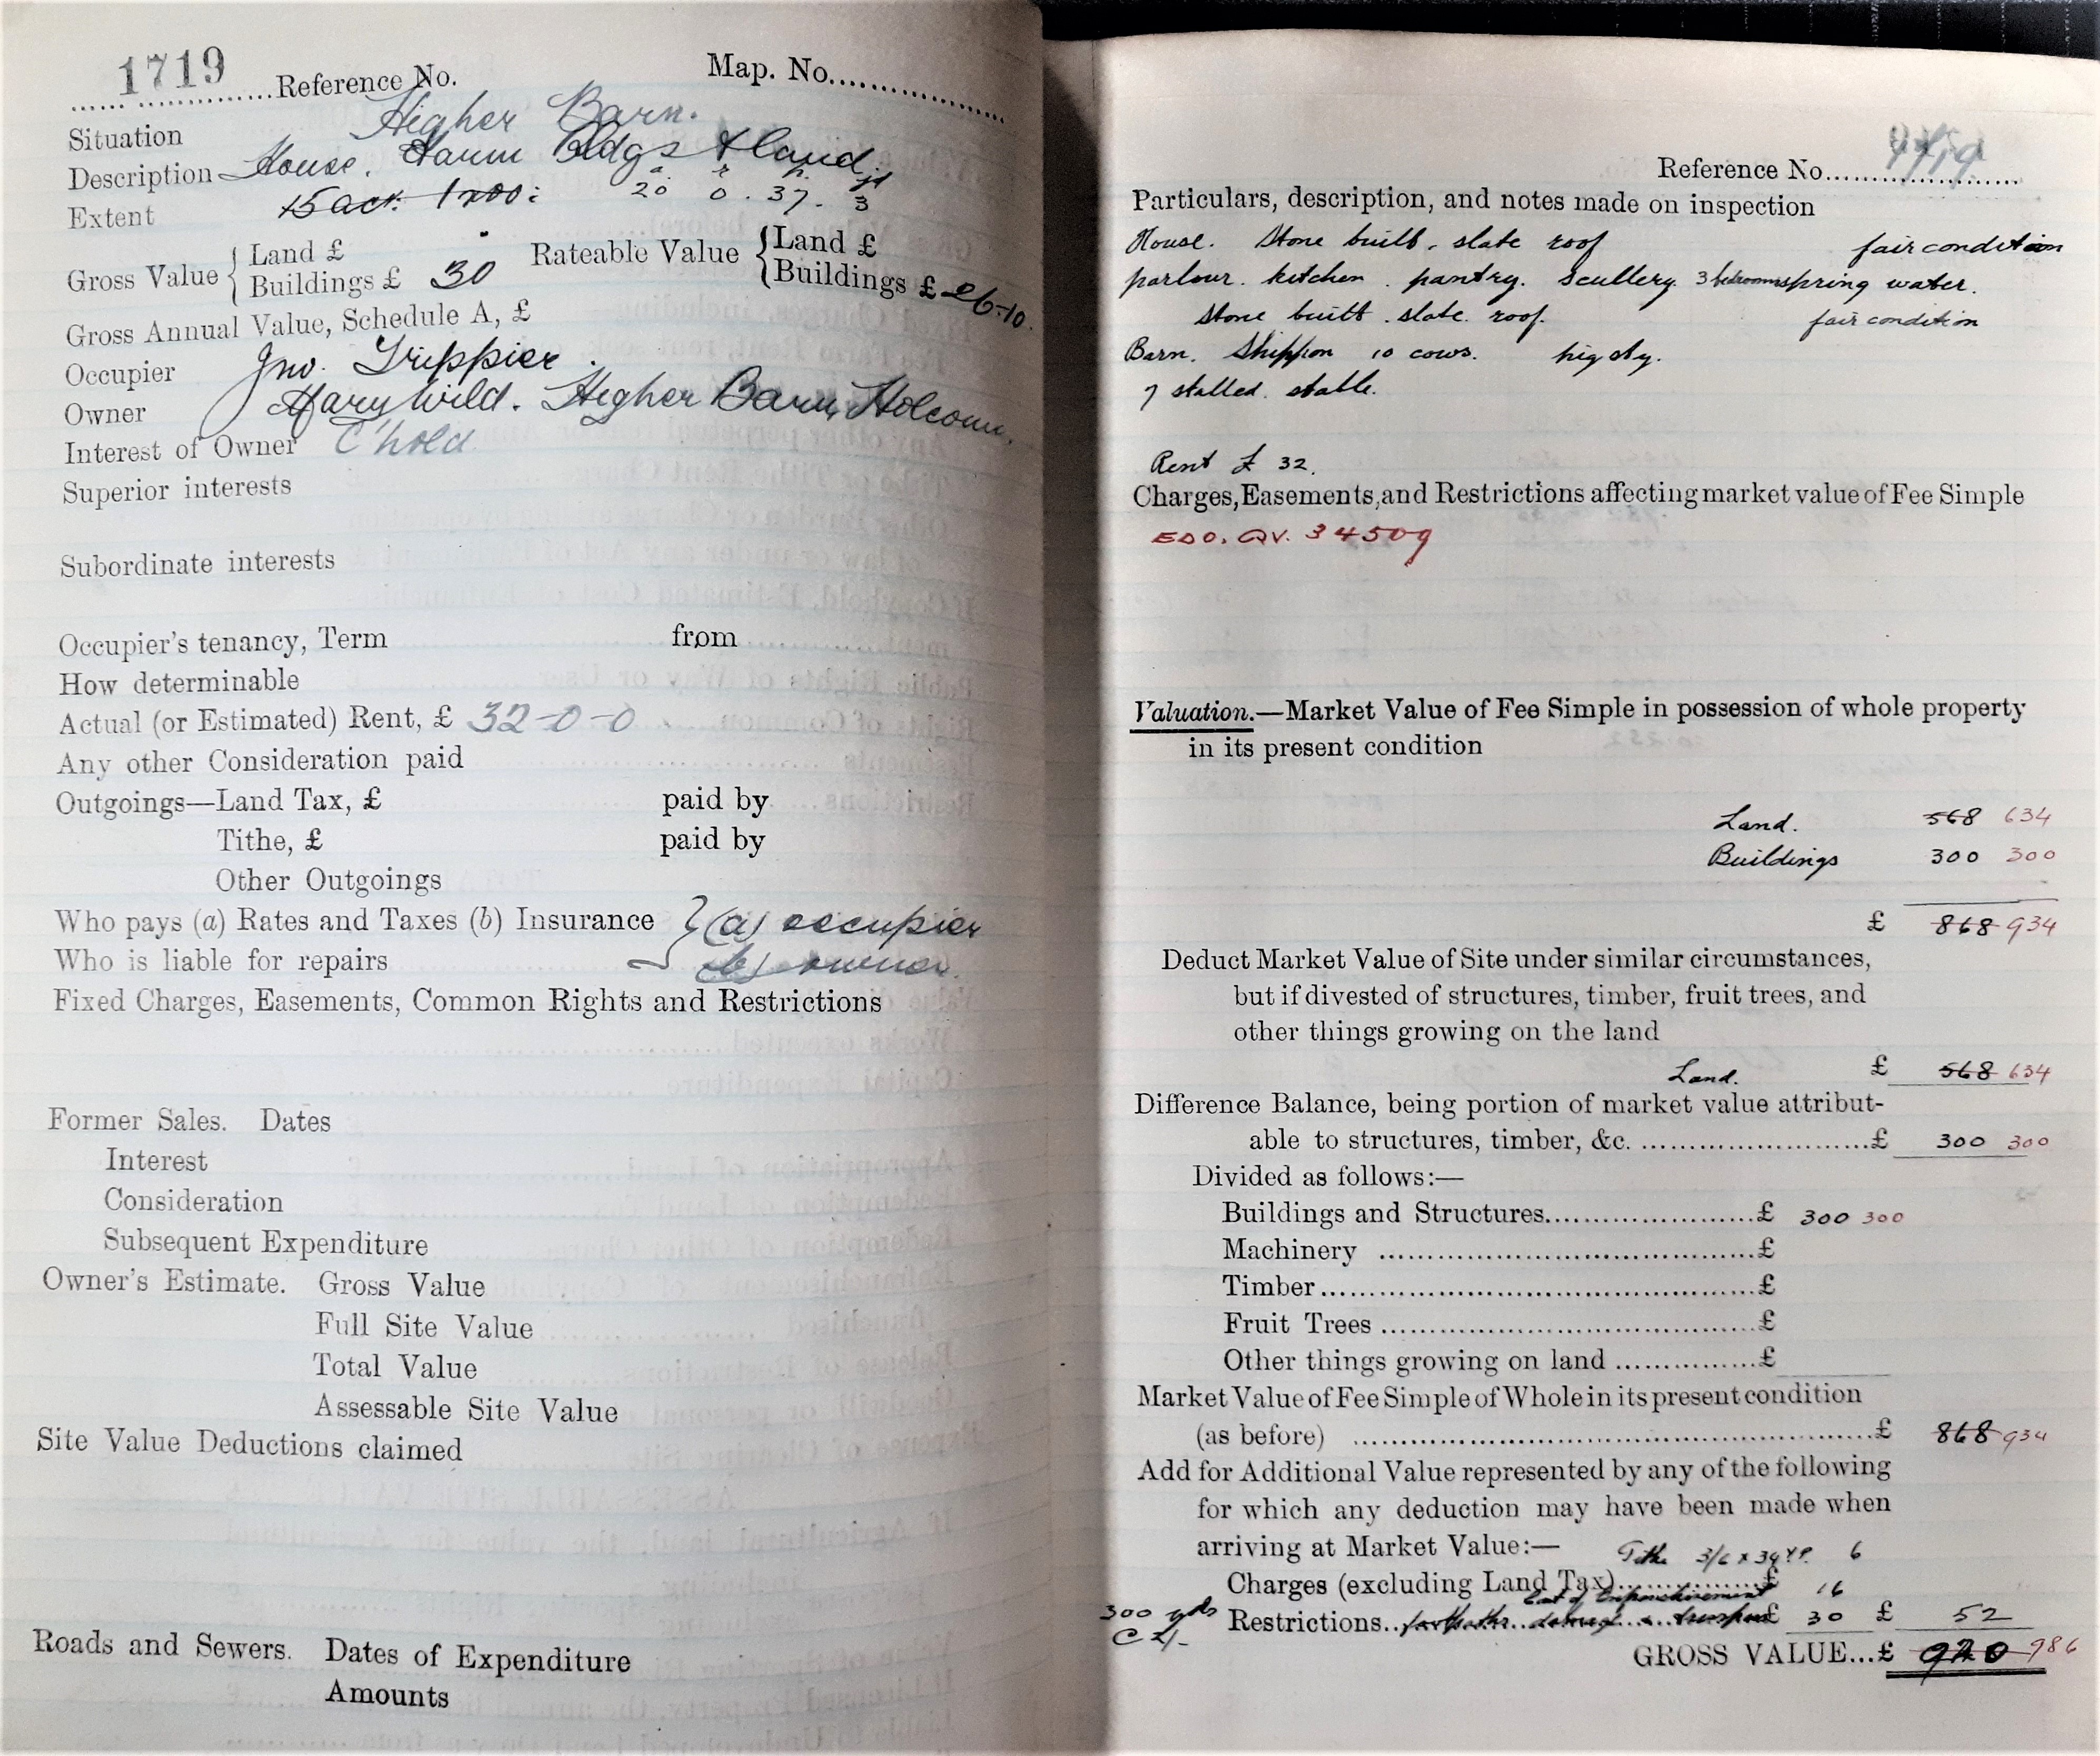 1719 Reference No. Map. No.
Situation Higher Barn.
Description House. Farm Bldgs & land
a. r. p. yd
Extent 15 acr. 1 roo: 20 0. 37. 3
Gross Value { Land £ Rateable Value { Land £
Buildings £ 30 Buildings £ 26-10
Gross Annual Value, Schedule A, £
Occupier Jno. Trippier.
Owner Mary Wild. Higher Barn, Holcom.
Interest of Owner C'hold
Superior interests
Subordinate interests
Occupier's tenancy, Term from
How determinable
Actual (or Estimated) Rent, £ 32-0-0
Any other Consideration paid
Outgoings—Land Tax, £ paid by
Tithe, £ paid by
Other Outgoings
Who pays (a) Rates and Taxes (b) Insurance } (a) occupier
Who is liable for repairs (b) owner.
Fixed Charges, Easements, Common Rights and Restrictions
Former Sales. Dates
Interest
Consideration
Subsequent Expenditure
Owner's Estimate. Gross Value
Full Site Value
Total Value
Assessable Site Value
Site Value Deductions claimed
Roads and Sewers. Dates of Expenditure
Amounts
Reference No. 1719
Particulars, description, and notes made on inspection
House. Stone built, slate roof fair condition
parlour. kitchen. pantry. scullery. 3 bedrooms spring water.
Stone built. slate. roof. fair condition
Barn. Shippon 10 cows. pig sty.
7 stalled. stable.
Rent £ 32.
Charges, Easements, and Restrictions affecting market value of Fee Simple
EDO. QV. 34509
Valuation.—Market Value of Fee Simple in possession of whole property
in its present condition
Land. 568 634
Buildings 300 300
£ 868 934
Deduct Market Value of Site under similar circumstances,
but if divested of structures, timber, fruit trees, and
other things growing on the land
Land. £ 568 634
Difference Balance, being portion of market value attribut-
able to structures, timber, &c. £ 300 300
Divided as follows:—
Buildings and Structures £ 300 300
Machinery £
Timber £
Fruit Trees £
Other things growing on land £
Market Value of Fee Simple of Whole in its present condition
(as before) £ 868 934
Add for Additional Value represented by any of the following
for which any deduction may have been made when
arriving at Market Value:— Tithe 3/6 x 34 YP. 6
Charges (excluding Land Tax) £ 16
Cost of Enfranchisement
300 yds Restrictions footpaths damage & trespass £ 30 £ 52
GROSS VALUE...£ 920 986